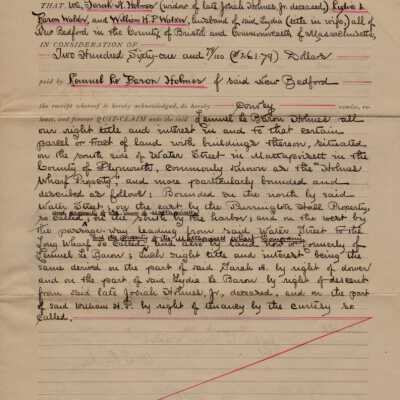 THAT We, Sarah H. Holmes (widow of late Josiah Holmes, Jr. deceased) Lydia L.
Baron Walsen, and William H. P. Walsen, husband of said Lydia (title in wife), all of
New Bedford in the County of Bristol and Commonwealth of Massachusetts,
IN CONSIDERATION OF
Two Hundred Sixty-one and 79/100 ($261.79) Dollars
paid by Lemuel Le Baron Holmes of said New Bedford
the receipt whereof is hereby acknowledged, do hereby Convey remise, re-
lease, and forever QUIT-CLAIM unto the said Lemuel Le Baron Holmes all
our right title and interest in and to that certain
parcel or tract of land with buildings thereon, situated
on the south side of Water Street in Mattapoisett in the
County of Plymouth, commonly known as the "Homes
Wharf Property", and more particularly bounded and
described as follows: Bounded on the north by said
Water Street; on the east by the Barrington Hall Property,
so called; on the south by the harbor; and on the west by
the passage-way leading from said Water Street to the
Long Wharf so called and the property of the Mattapoisett Wharf Company
also by land now or formerly of
Lemuel Le Baron; such right title and interest being the
same derived on the part of said Sarah H. by right of dower
and on the part of said Lydia Le Baron by right of descent
from said late Josiah Holmes, Jr., deceased, and on the part
of said William H. P. by right of tenancy by the curtesy so
called.